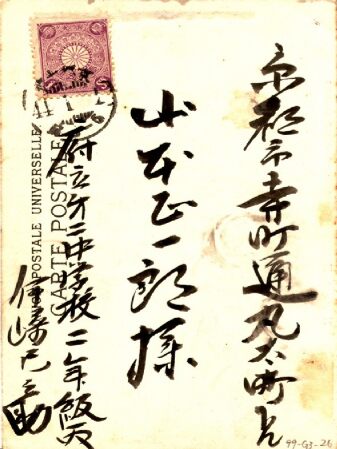 京都市寺町通丸太町上
山本正一郎様
府立第二中学校二年級丙
UNION POSTALE UNIVERSELLE
CARTE POSTALE
99-G3-26